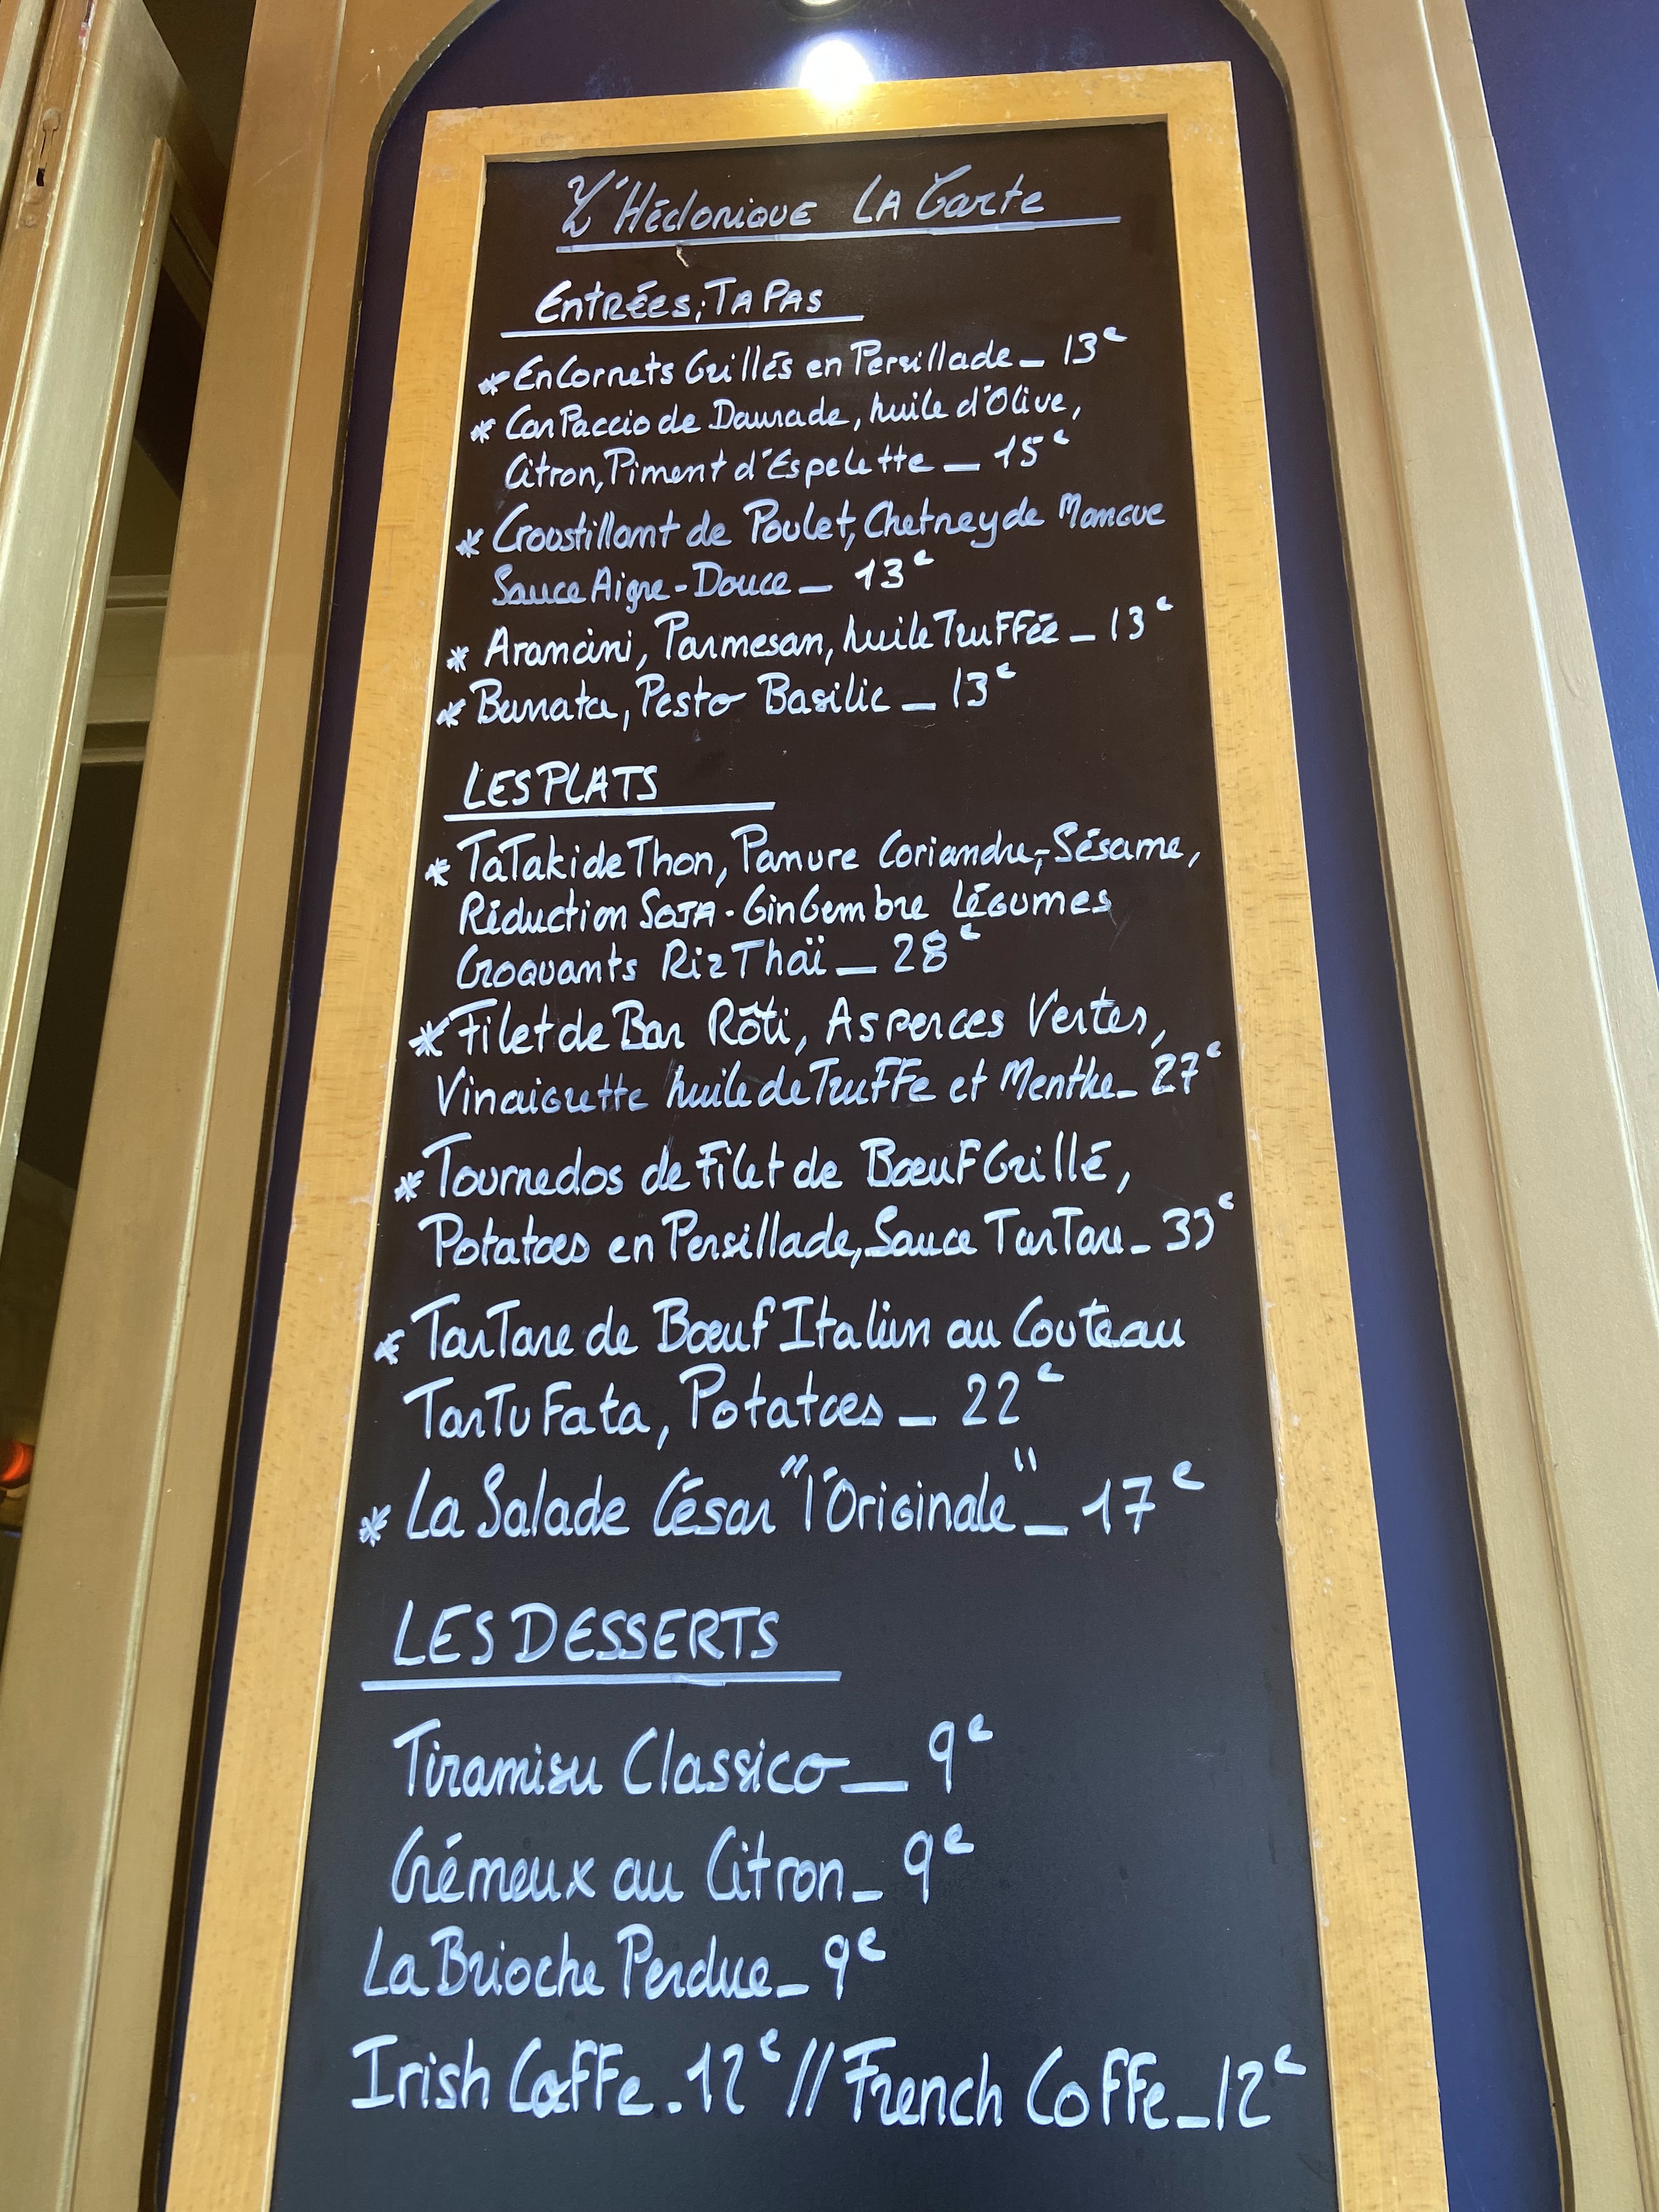 L'Hédonique La Carte
Entrées; Tapas
* Encornets Grillés en Persillade _ 13€
* Carpaccio de Daurade, huile d'Olive,
Citron, Piment d'Espelette _ 15€
* Croustillant de Poulet, Chetney de Mangue
Sauce Aigre-Douce _ 13€
* Arancini, Parmesan, huile Truffée _ 13€
* Burrata, Pesto Basilic _ 13€
LES PLATS
* Tataki de Thon, Panure Coriandre, Sésame,
Réduction Soja-Gingembre Légumes
Croquants Riz Thaï _ 28€
* Filet de Bar Rôti, Asperges Vertes,
Vinaigrette huile de Truffe et Menthe _ 27€
* Tournedos de Filet de Bœuf Grillé,
Potatoes en Persillade, Sauce Tartare _ 33€
* Tartare de Bœuf Italien au Couteau
Tartufata, Potatoes _ 22€
* La Salade César "l'Originale" _ 17€
LES DESSERTS
Tiramisu Classico _ 9€
Crémeux au Citron _ 9€
La Brioche Perdue _ 9€
Irish Coffe _ 12€ // French Coffe _ 12€